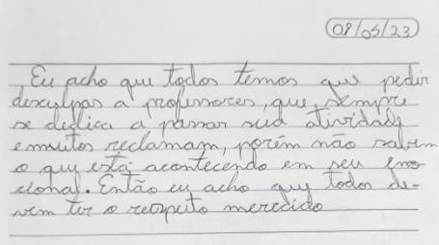 08/05/23
Eu acho que todos temos que pedir
desculpas a professores, que sempre
se dedica a passar sua atividade
e muitos reclamam, porém não sabem
o que está acontecendo em seu emo-
cional. Então eu acho que todos de-
vem ter o respeito merecido